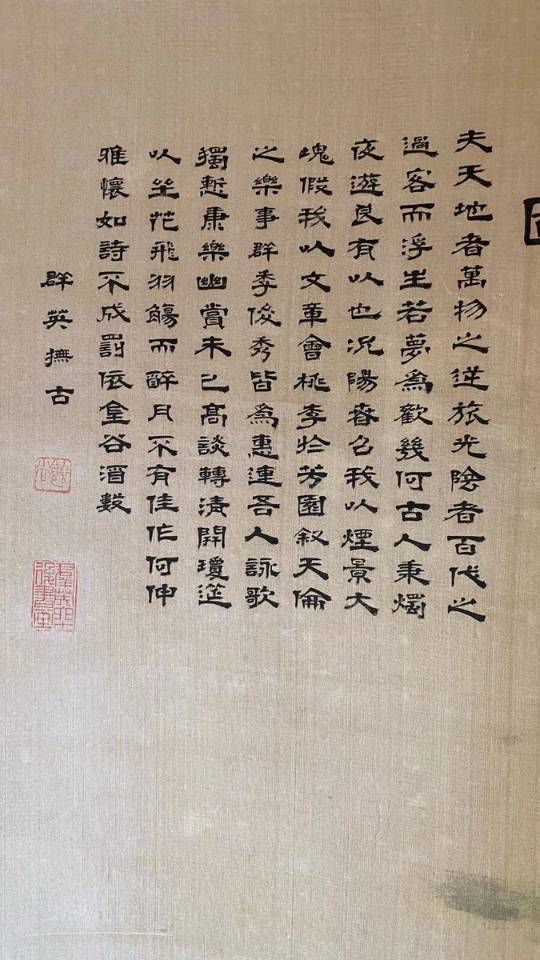 夫天地者萬物之逆旅光陰者百代之
過客而浮生若夢為歡幾何古人秉燭
夜遊良有以也況陽春召我以煙景大
塊假我以文章會桃李於芳園叙天倫
之樂事群季俊秀皆為惠連吾人詠歌
獨慙康樂幽賞未已高談轉清開瓊筵
以坐花飛羽觴而醉月不有佳作何伸
雅懷如詩不成罰依金谷酒數
群英撫古